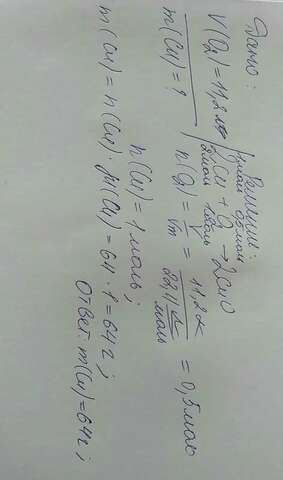 Дано:
V(O₂) = 11,2 л
m(Cu) = ?
Решение:
1моль 0,5моль
2Cu + O₂ → 2CuO
2моль 1моль
n(O₂) = V/Vm = 11,2 л / 22,4 л/моль = 0,5 моль
n(Cu) = 1 моль;
m(Cu) = n(Cu) · M(Cu) = 64 · 1 = 64 г;
Ответ: m(Cu) = 64г;